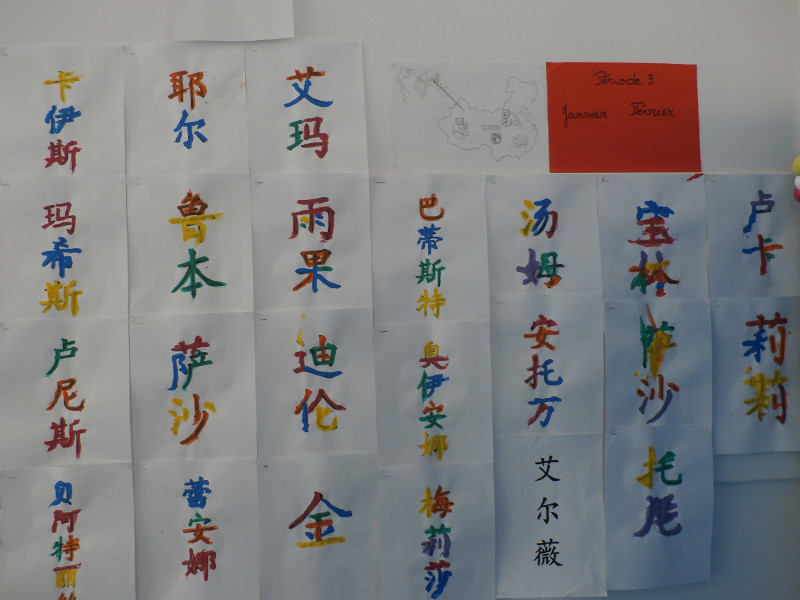 卡伊斯
耶尔
艾玛
Période 3
Janvier - Février
玛希斯
鲁本
雨果
巴蒂斯特
汤姆
宝林
卢卡
卢尼斯
萨沙
迪伦
奥伊安娜
安托万
萨沙
莉莉
贝阿特丽
蕾安娜
金
梅莉莎
艾尔薇
托